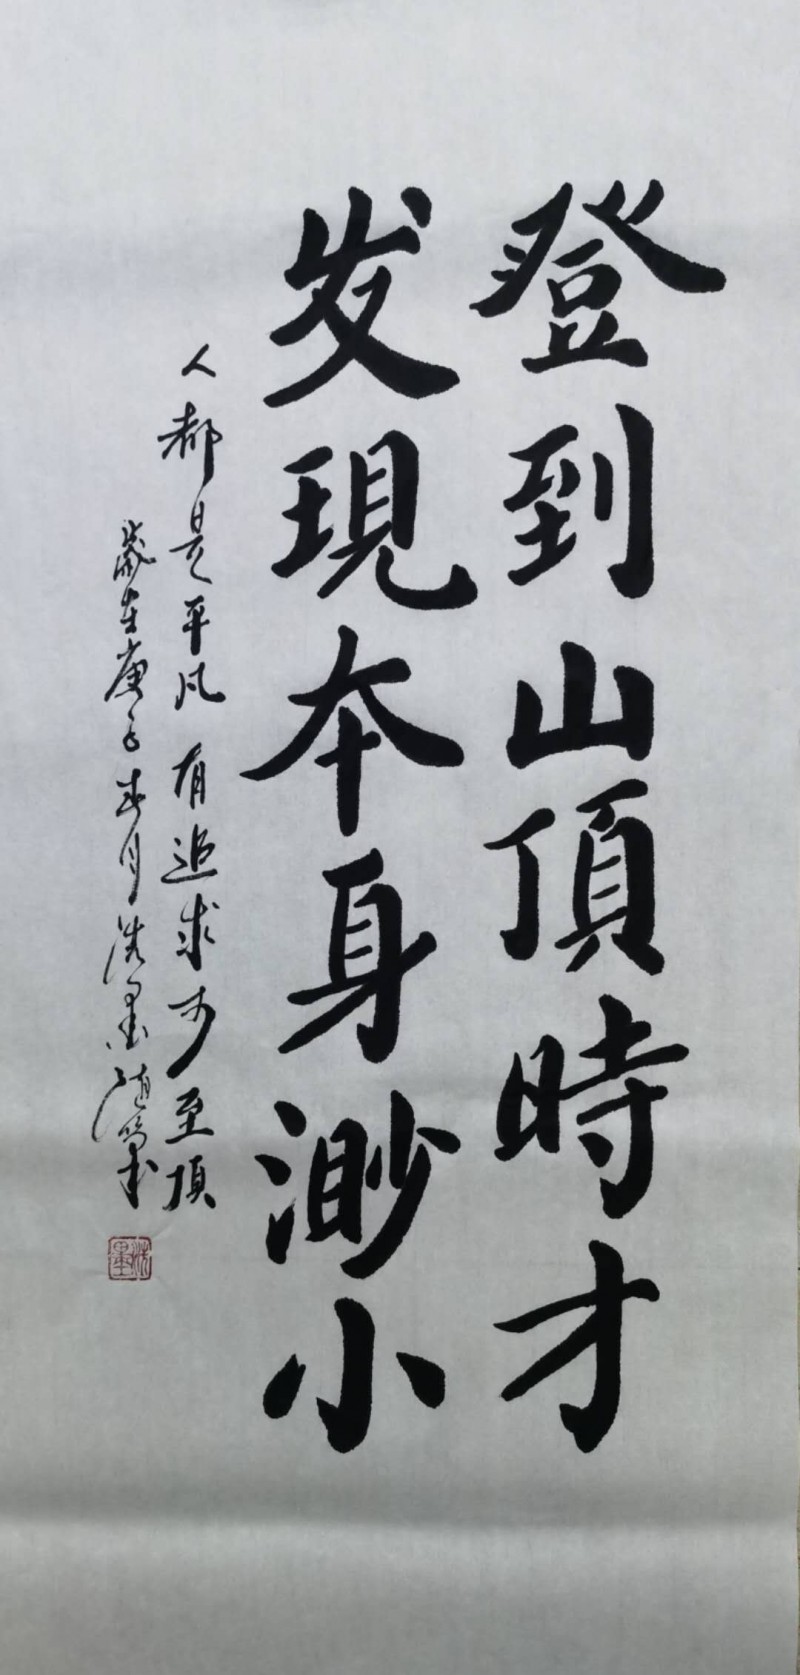 登到山頂時才
发現本身渺小
人都是平凡 有追求才至頂
歲在庚子春月洗墨随笔
洗墨